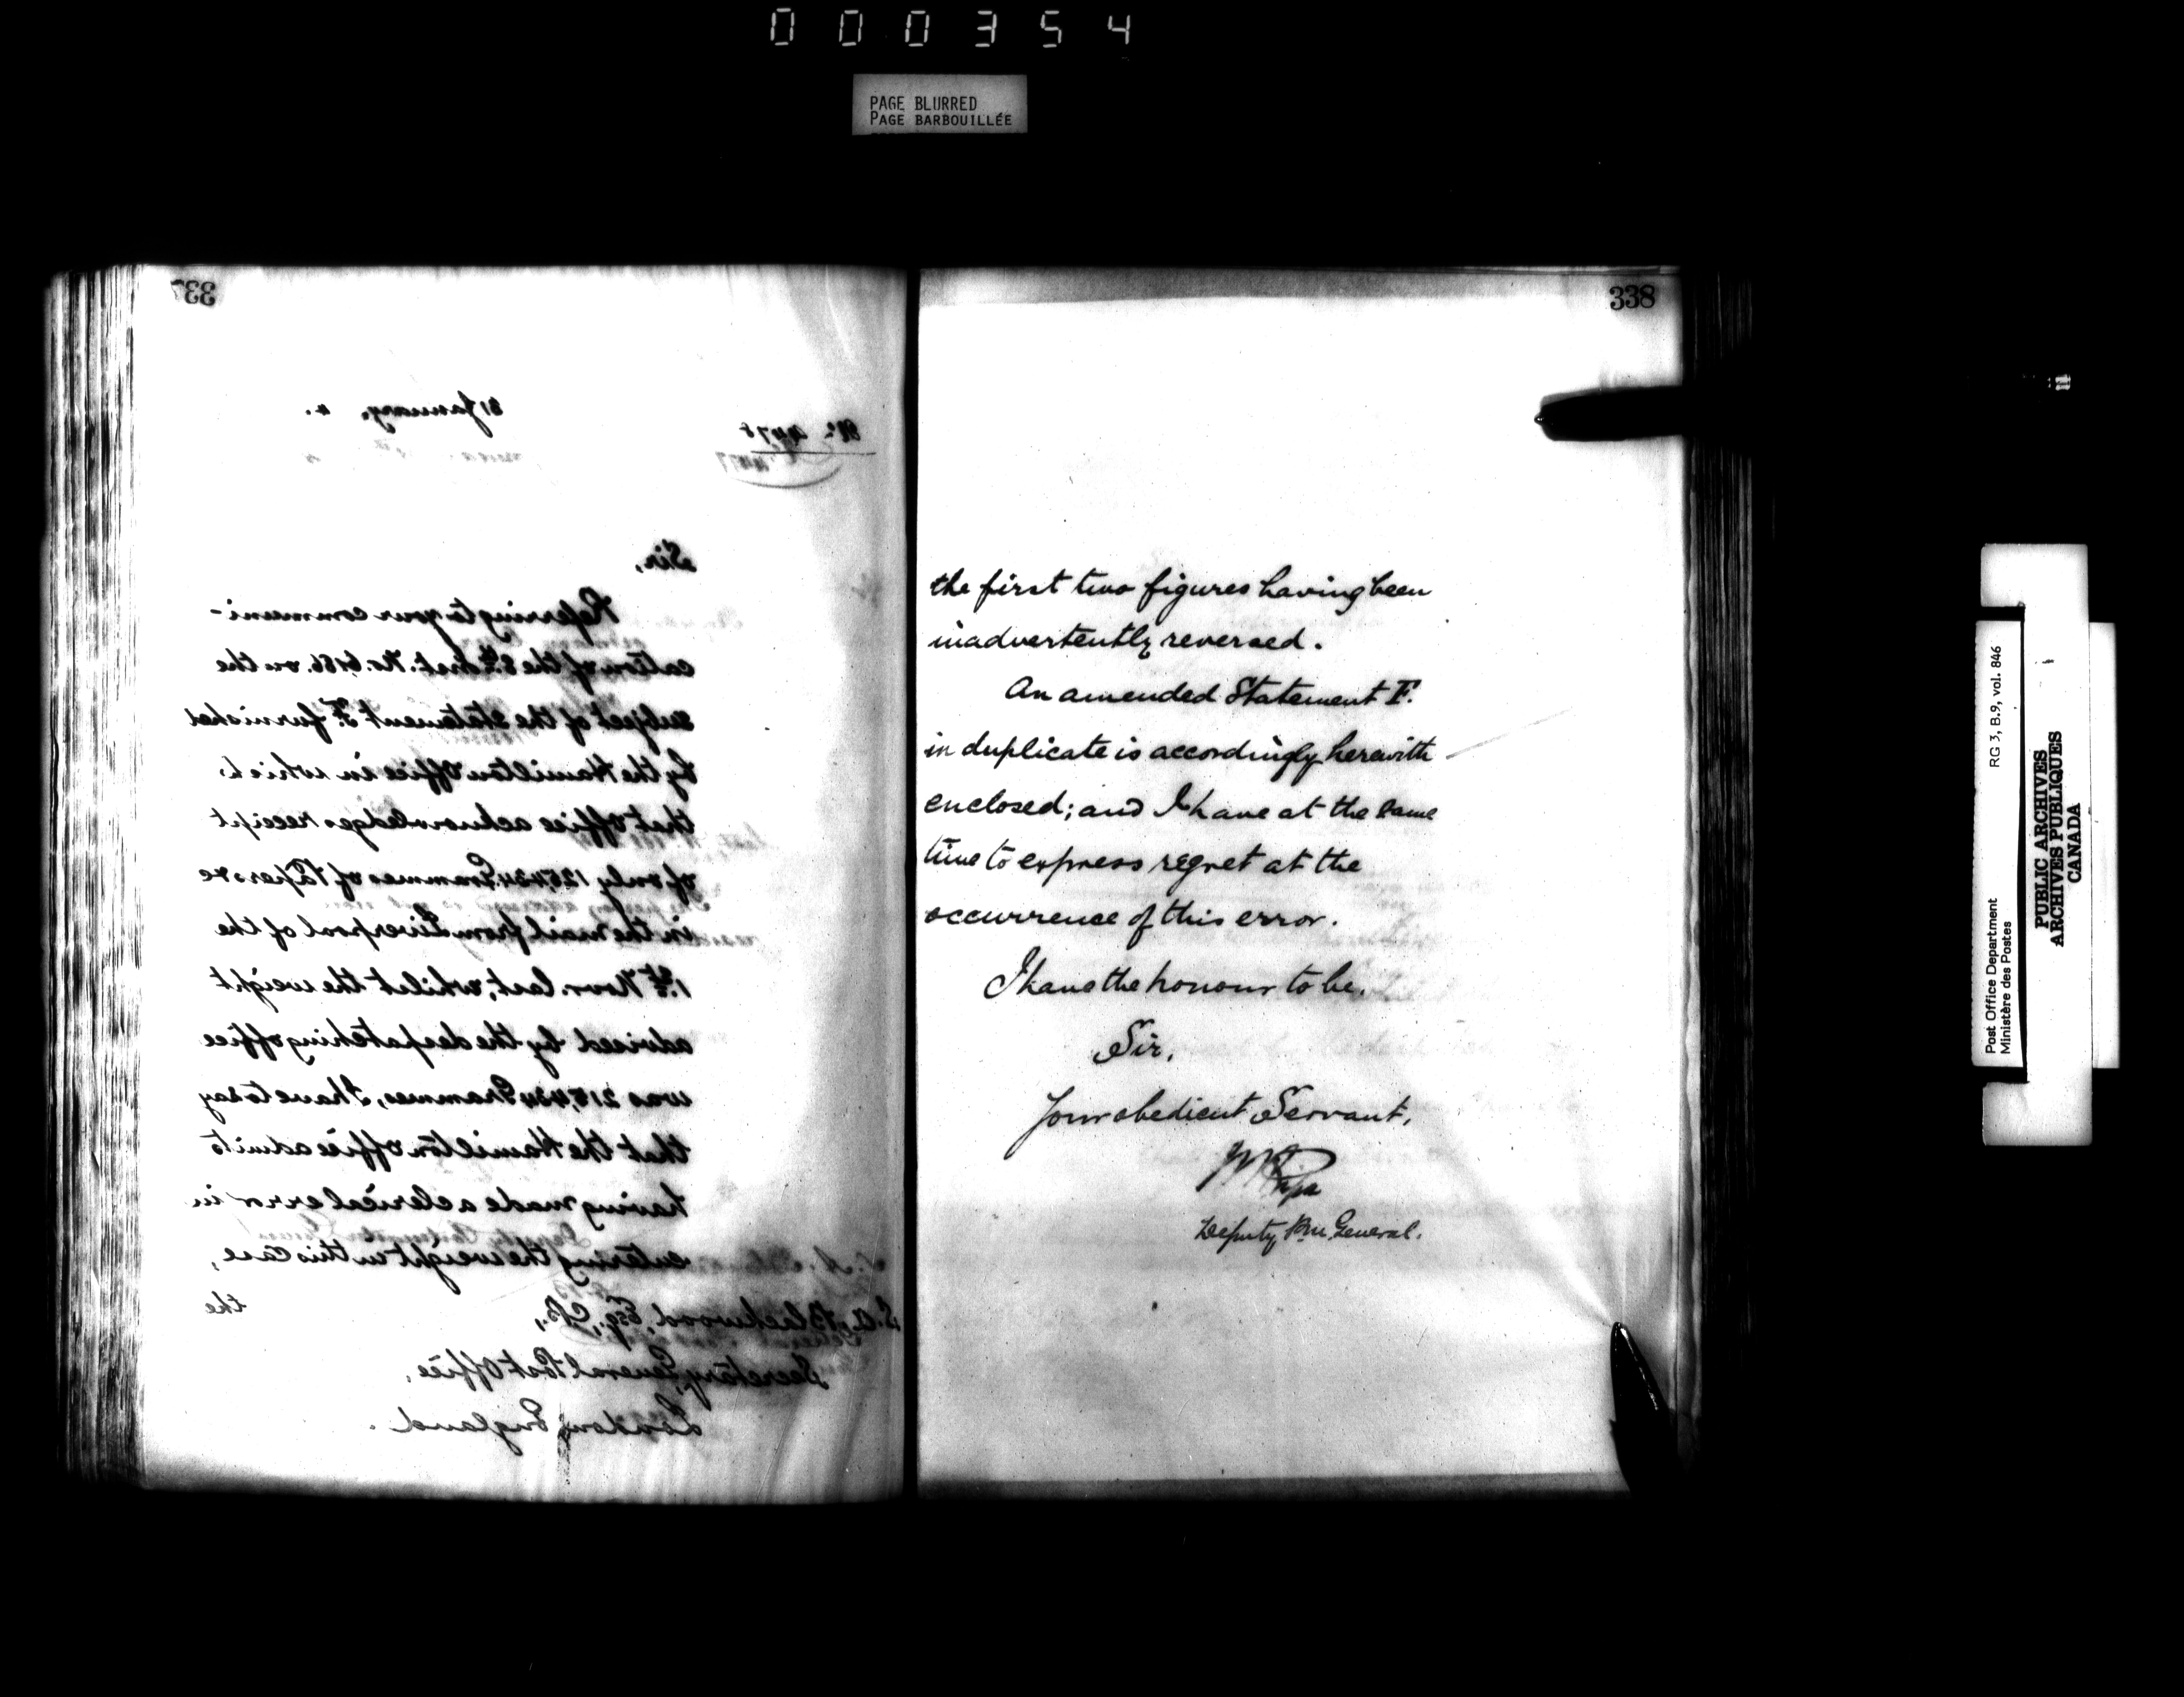 000354
PAGE BLURRED
PAGE BARBOUILLÉE
337
31 January, 4.
No. 4478
Sir,
Referring to your communi-
cation of the 8th Inst. No. 6,186. on the
subject of the Statement F. furnished
by the Hamilton Office in which
that office acknowledges receipt
of only 128,434 Grammes of Papers &c
in the mail from Liverpool of the
1st Novr. last, whilst the weight
advised by the despatching office
was 218,434 Grammes, I have to say
that the Hamilton office admits
having made a clerical error in
entering the weight in this case,
the
S. A. Blackwood, Esq., C.B.,
Secretary, General Post Office,
London, England.
338
the first two figures having been
inadvertently reversed.
An amended Statement F.
in duplicate is accordingly herewith
enclosed; and I have at the same
time to express regret at the
occurrence of this error.
I have the honour to be,
Sir,
Your obedient Servant,
Deputy P.M. General.
Post Office Department
Ministère des Postes
RG 3, B.9, vol. 846
PUBLIC ARCHIVES
ARCHIVES PUBLIQUES
CANADA